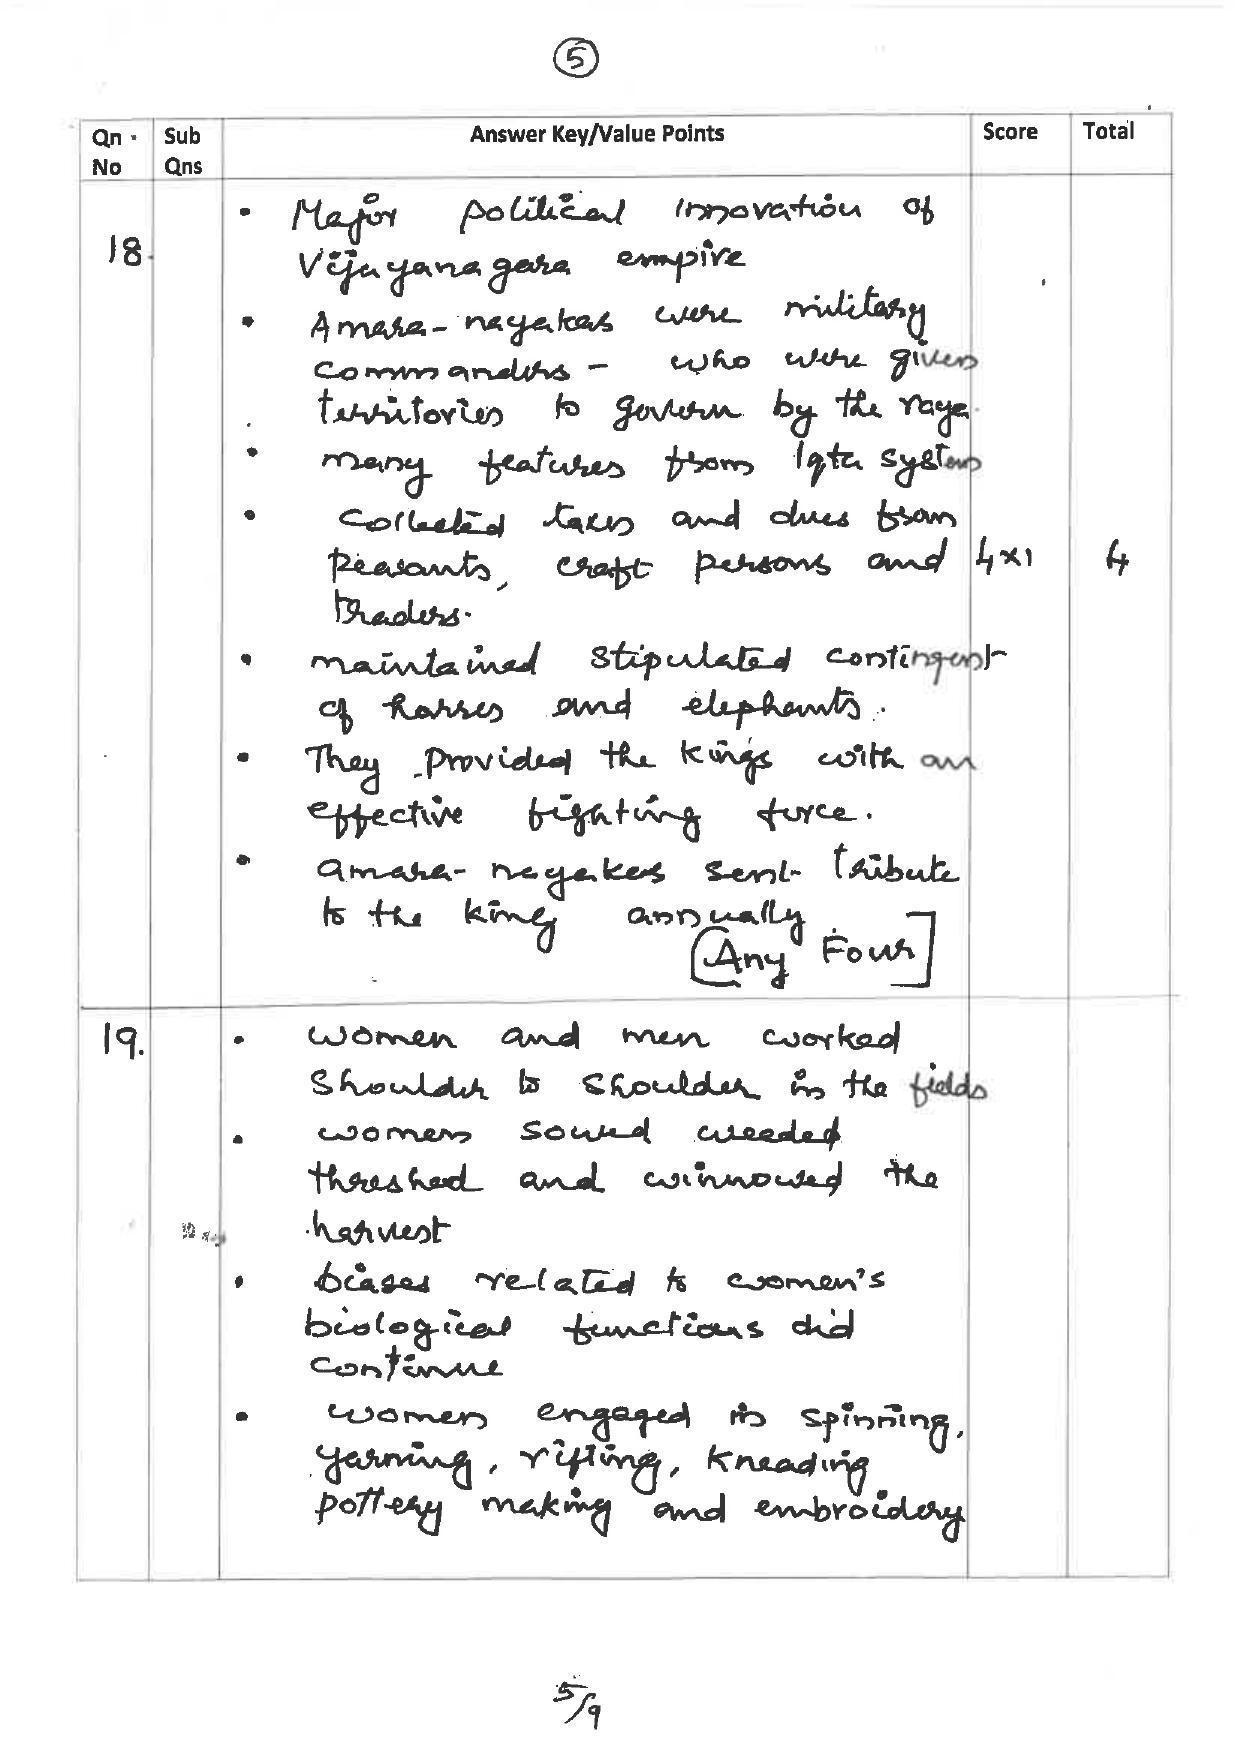 5
Qn. No
Sub Qns
Answer Key/Value Points
Score
Total
18.
• Major political innovation of
Vijayanagara empire
• Amara-nayakas were military
commanders - who were given
territories to govern by the raya.
• many features from Iqta system
• collected taxes and dues from
peasants, craft persons and
traders.
4x1
4
• maintained stipulated contingent
of horses and elephants.
• They provided the kings with an
effective fighting force.
• amara-nayakas sent tribute
to the king annually
[Any Four]
19.
• women and men worked
shoulder to shoulder in the fields
• women sowed weeded
threshed and winnowed the
harvest
• biases related to women's
biological functions did
continue
• women engaged in spinning,
yarning, rifting, kneading
pottery making and embroidery
5/9